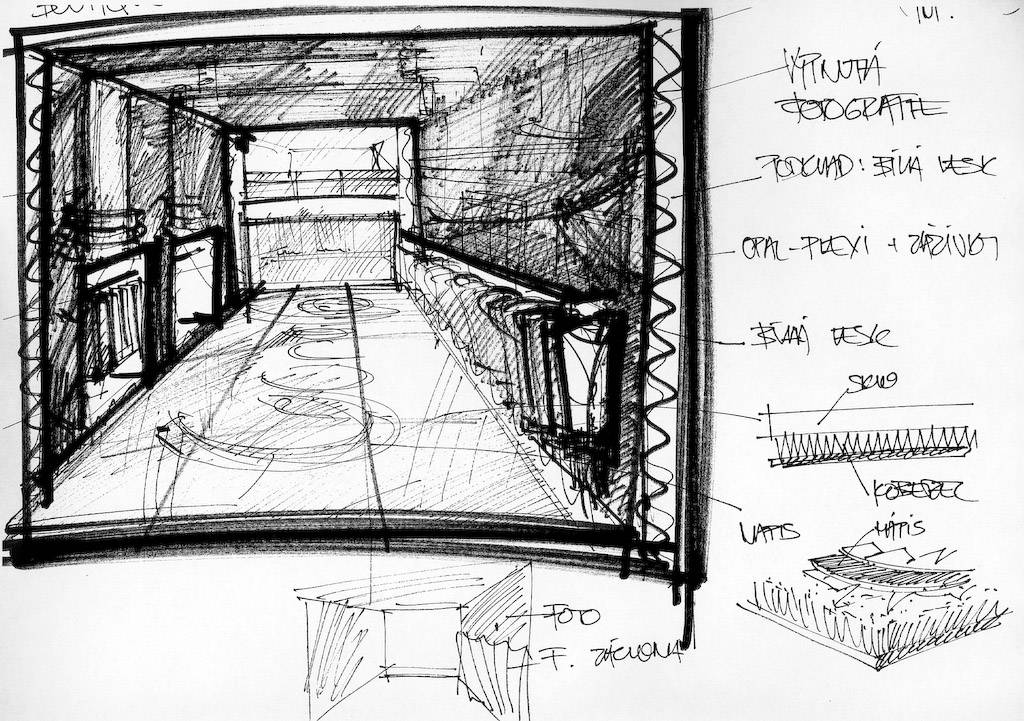 VYPNUTÁ
FOTOGRAFIE
PODKLAD: BÍLÁ LESK
OPAL-PLEXI + ZÁŘIVKY
BÍLÁ LESK
SKLO
KOBEREC
NÁPIS
NÁPIS
FOTO
F. ZÁCLONA